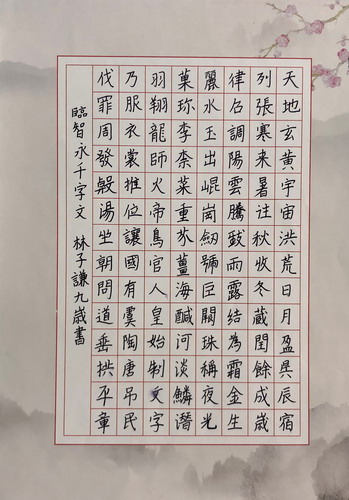 天地玄黃宇宙洪荒日月盈昃辰宿
列張寒來暑往秋收冬藏閏餘成歲
律召調陽雲騰致雨露結為霜金生
麗水玉出崐崗劒號巨闕珠稱夜光
菓珍李柰菜重芥薑海鹹河淡鱗潛
羽翔龍師火帝鳥官人皇始制文字
乃服衣裳推位讓國有虞陶唐吊民
伐罪周發殷湯坐朝問道垂拱平章
臨智永千字文 林子謙九歲書